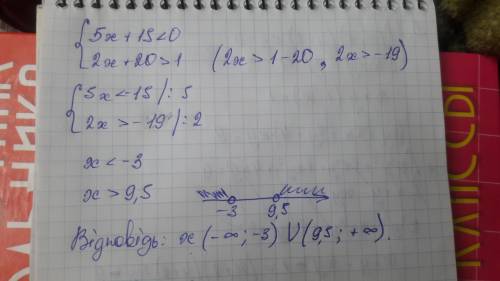 5x+15<0
2x+20>1 (2x>1-20, 2x>-19)
5x<-15/:5
2x>-19/:2
x<-3
x>9,5
-3 9,5
Відповідь: x (-∞;-3) U (9,5; +∞).